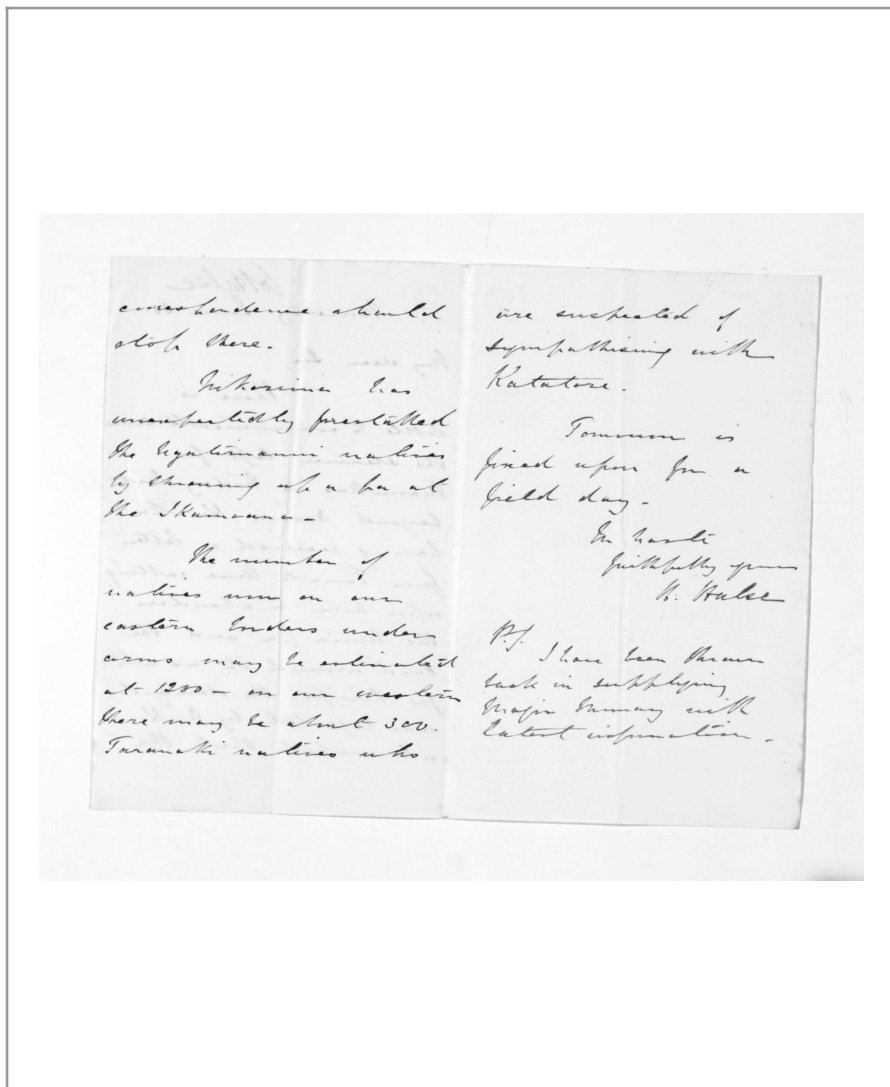 correspondence should
stop there.
Nikorima has
unexpectedly forestalled
the Ngatimaniu natives
by throwing up a pa at
the Ikamoana -
The number of
natives now on our
eastern borders under
arms may be estimated
at 1200 - on our western
there may be about 300.
Taranaki natives who
are suspected of
sympathising with
Katatore.
Tomorrow is
fixed upon for a
field day.
In haste
faithfully yours
H. Halse
P.S.
I have been thrown
back in supplying
Major Murray with
latest information.